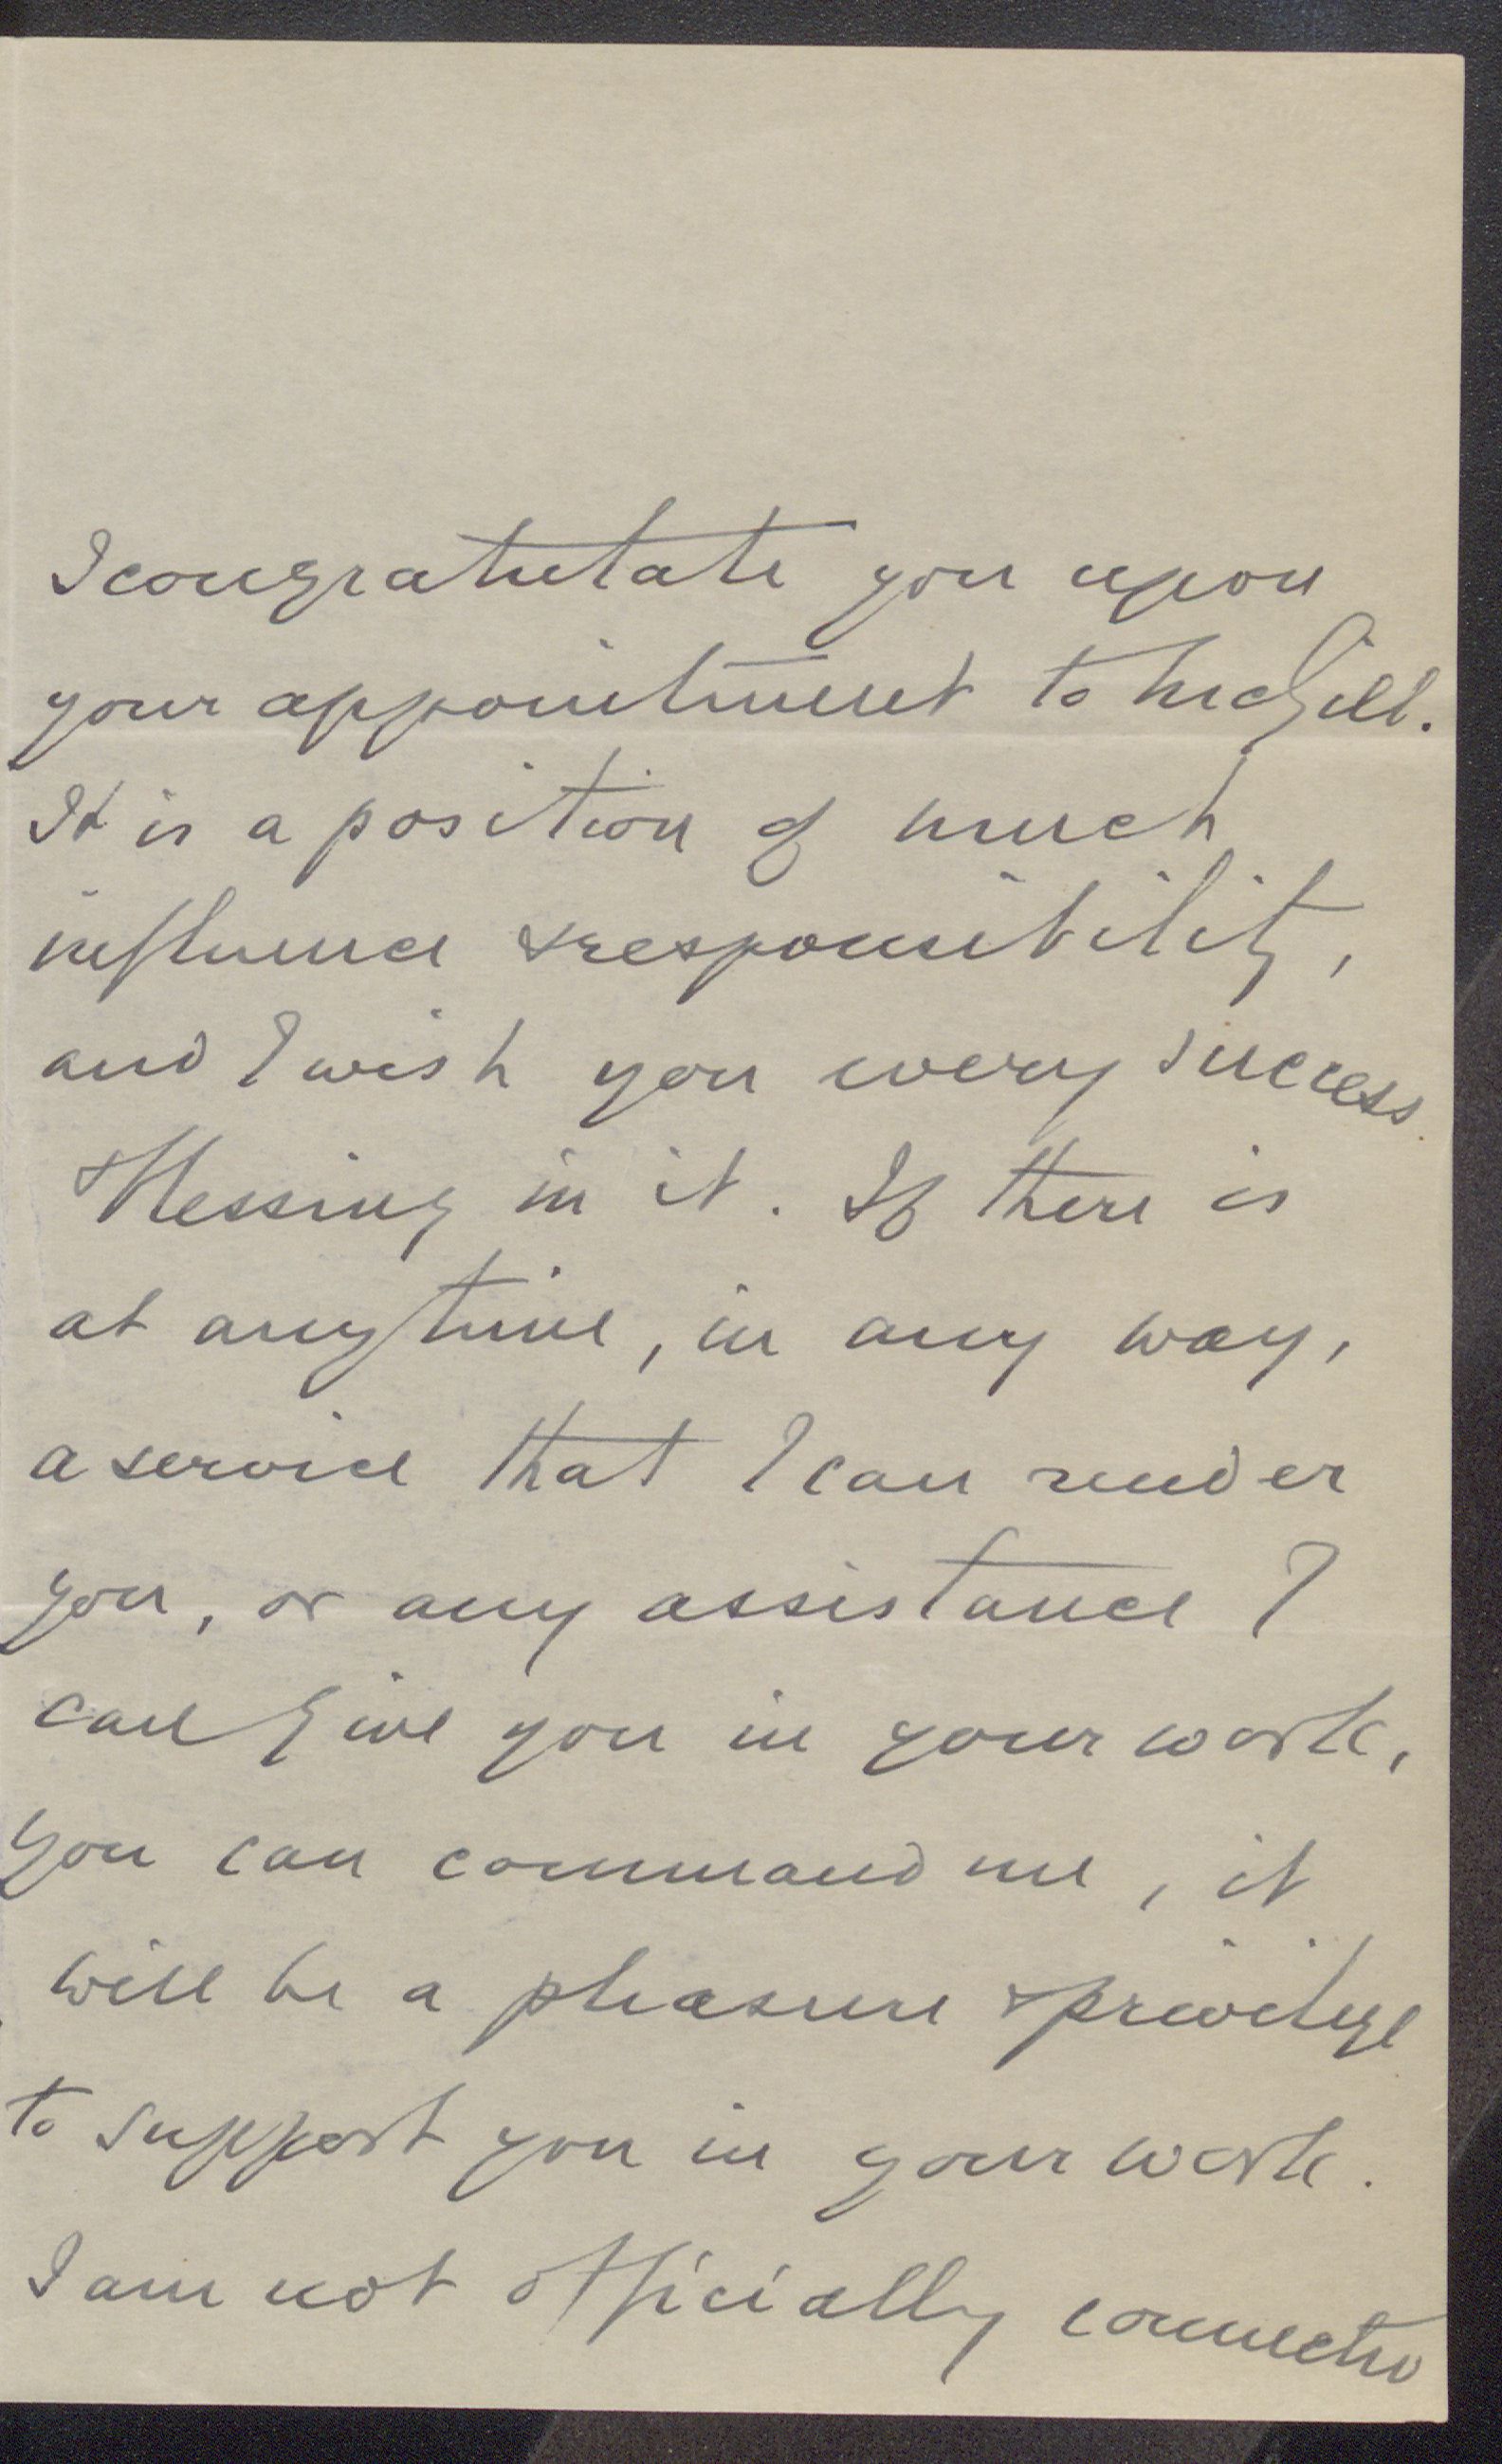 I congratulate you upon
your appointment to McGill.
It is a position of much
influence & responsibility,
and I wish you every success
& blessing in it. If there is
at any time, in any way,
a service that I can render
you, or any assistance I
can give you in your work,
you can command me, it
will be a pleasure & privilege
to support you in your work.
I am not officially connected